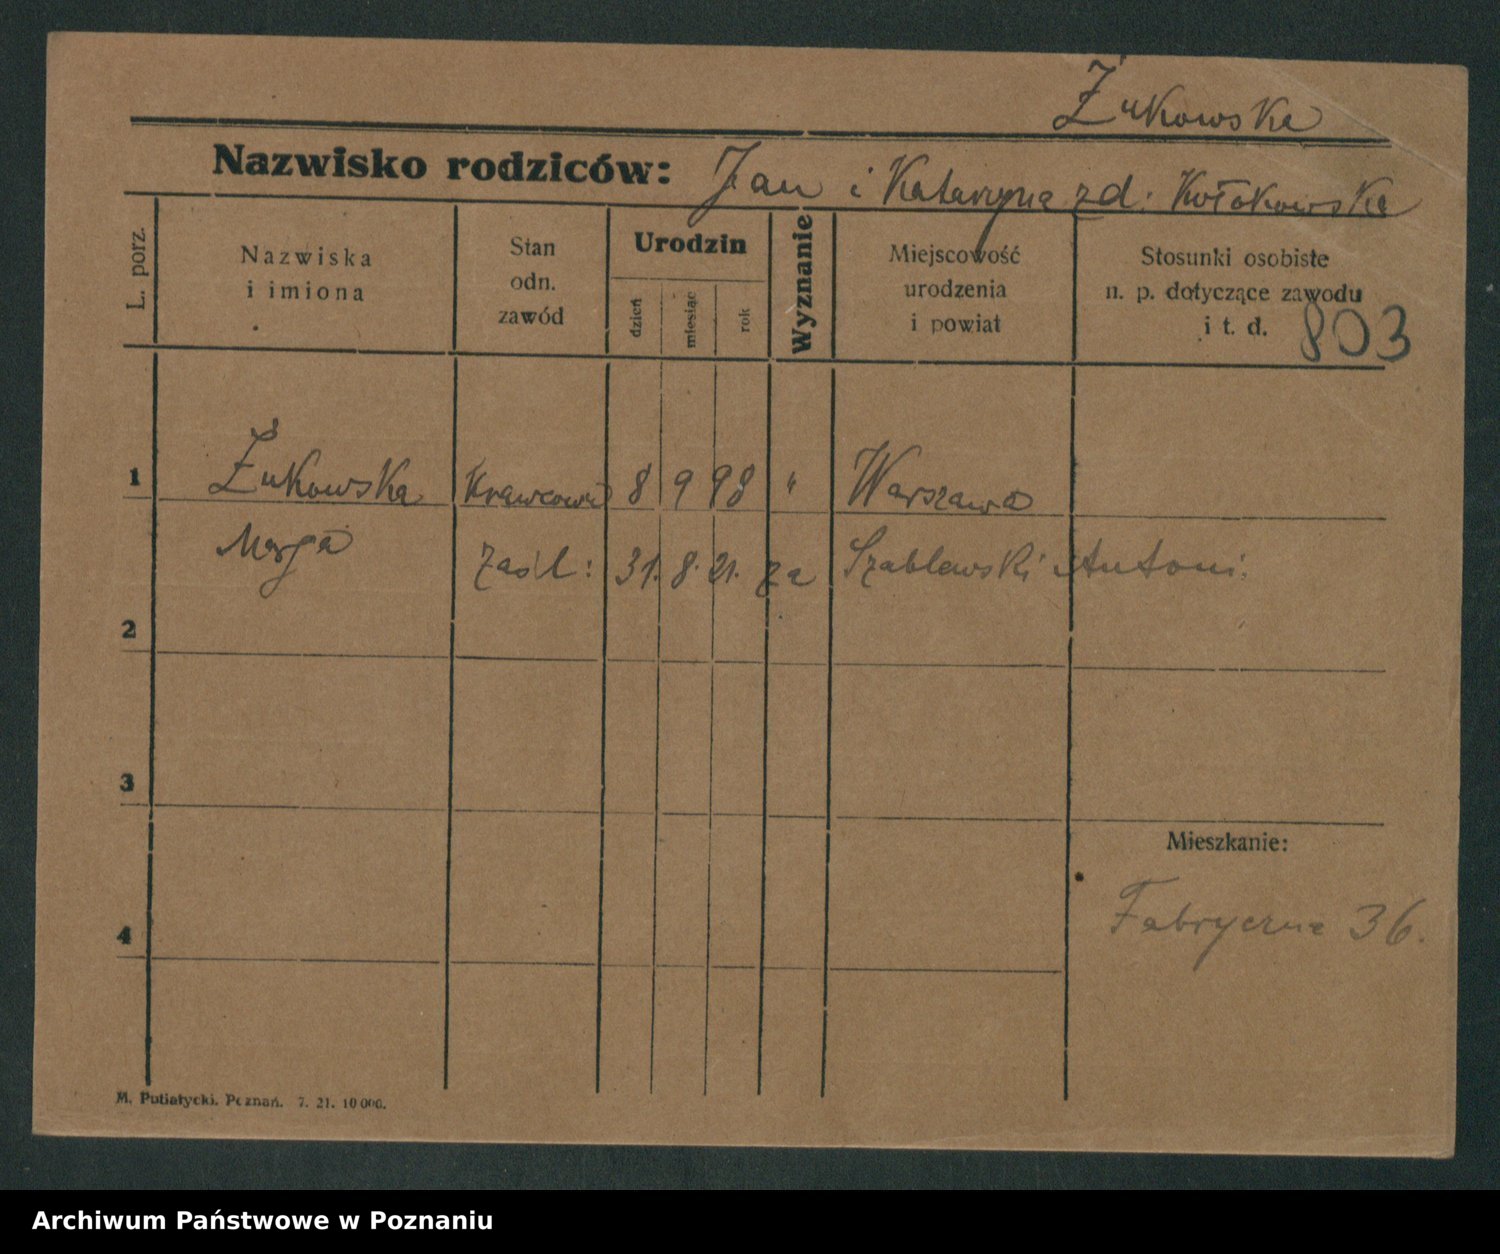 Żukowska
Nazwisko rodziców: Jan i Katarzyna zd: Kołakowska
L. porz.
Nazwiska i imiona
Stan odn. zawód
Urodzin
dzień
miesiąc
rok
Wyznanie
Miejscowość urodzenia i powiat
Stosunki osobiste n. p. dotyczące zawodu i t. d.
803
1 Żukowska Krawcowa 8 9 98 " Warszawa
Marja zaśl: 31. 8. 21. za Szablewski Antoni.
2
3
Mieszkanie:
4 Fabryczna 36.
M. Putiatycki. Poznań. 7. 21. 10 000.
Archiwum Państwowe w Poznaniu